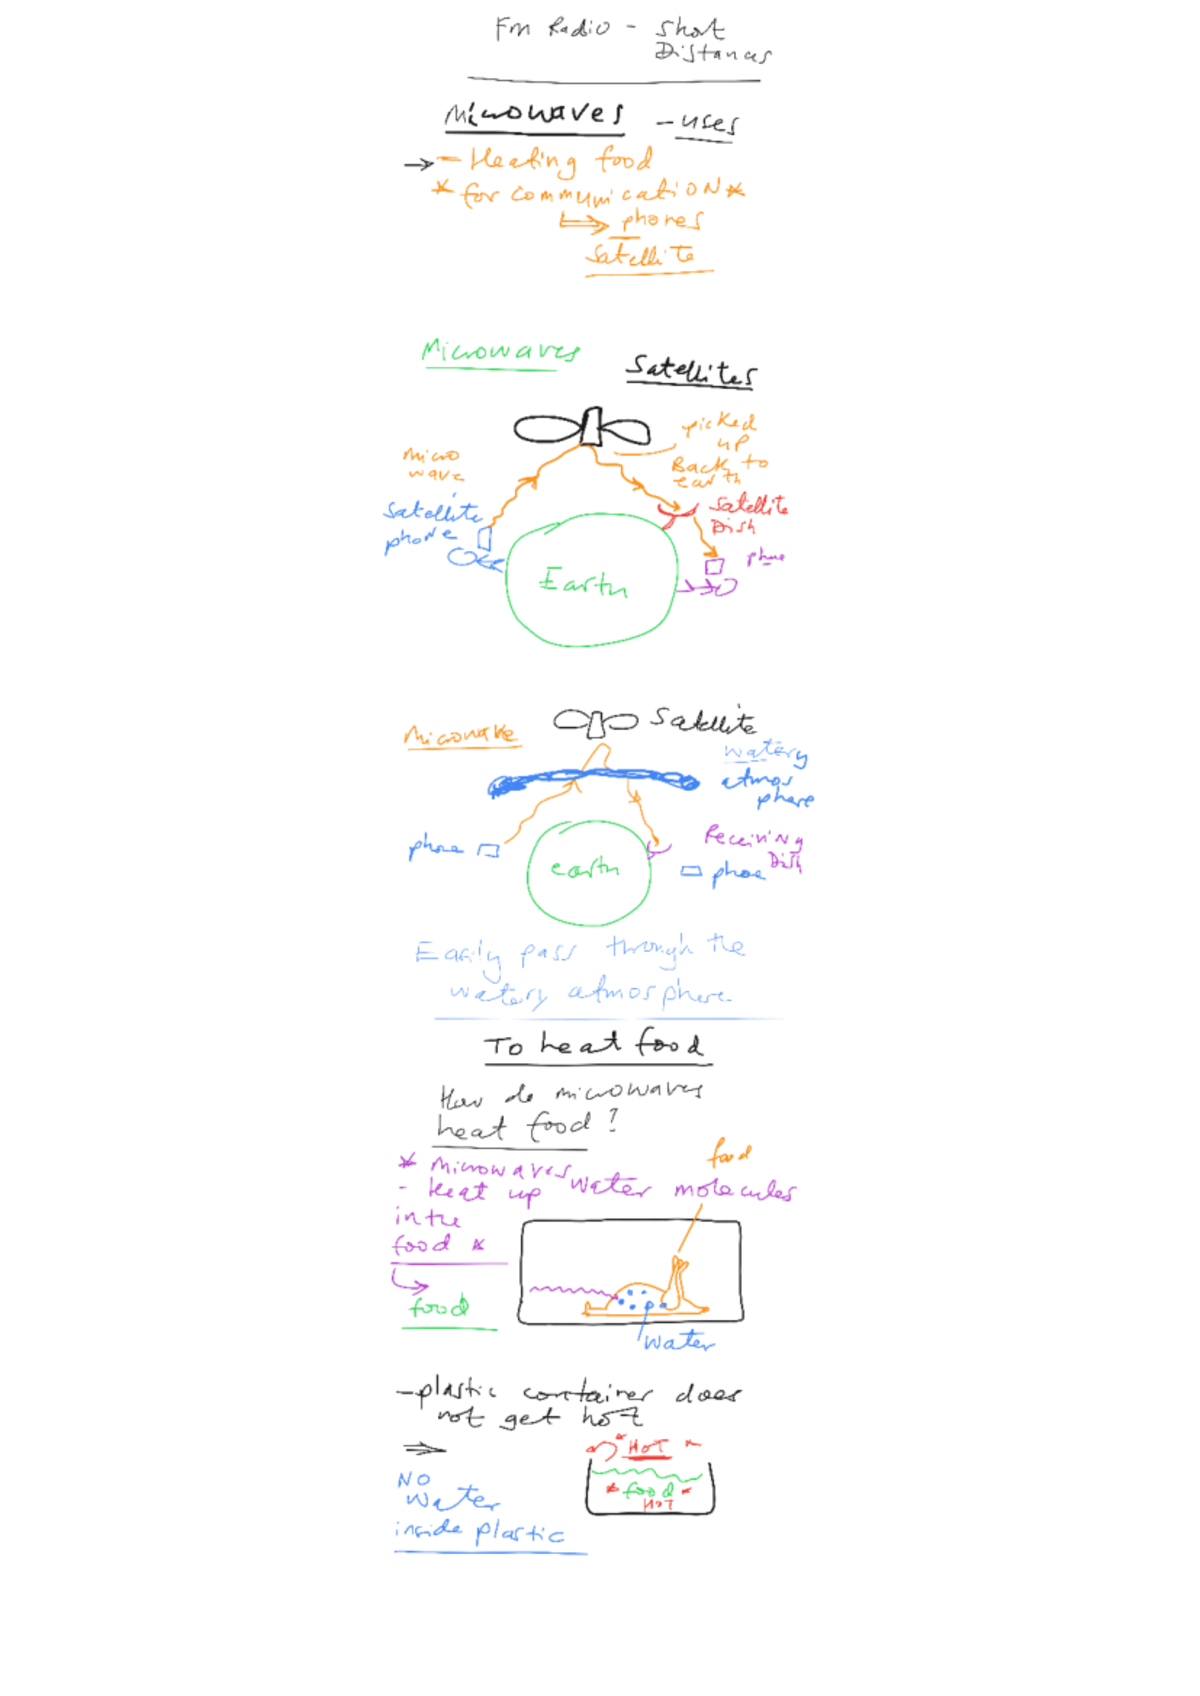 Fm Radio - Short
Distances
Microwaves - uses
→ - Heating food
* for communication *
⇒ phones
Satellite
Microwaves
Satellites
picked
up
Back to
earth
micro
wave
Satellite
phone
Satellite
Dish
phone
Earth
Satellite
Microwave
watery
atmos
phere
phone
Receiving
Dish
earth
phone
Easily pass through the
watery atmosphere
To heat food
How do microwaves
heat food?
food
* microwaves
- heat up water molecules
in the
food *
food
water
- plastic container does
not get hot
⇒
* HOT *
NO
water
* food *
HOT
inside plastic